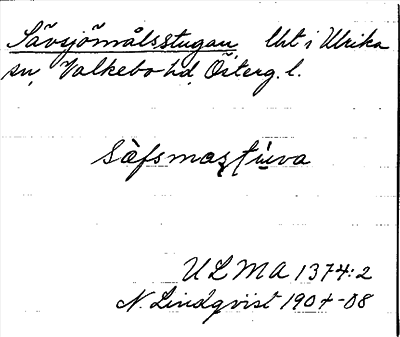 Sävsjömålsstugan lht i Ulrika
sn, Valkebo hd, Österg. l.
ULMA 1374:2
N. Lindqvist 1904-08